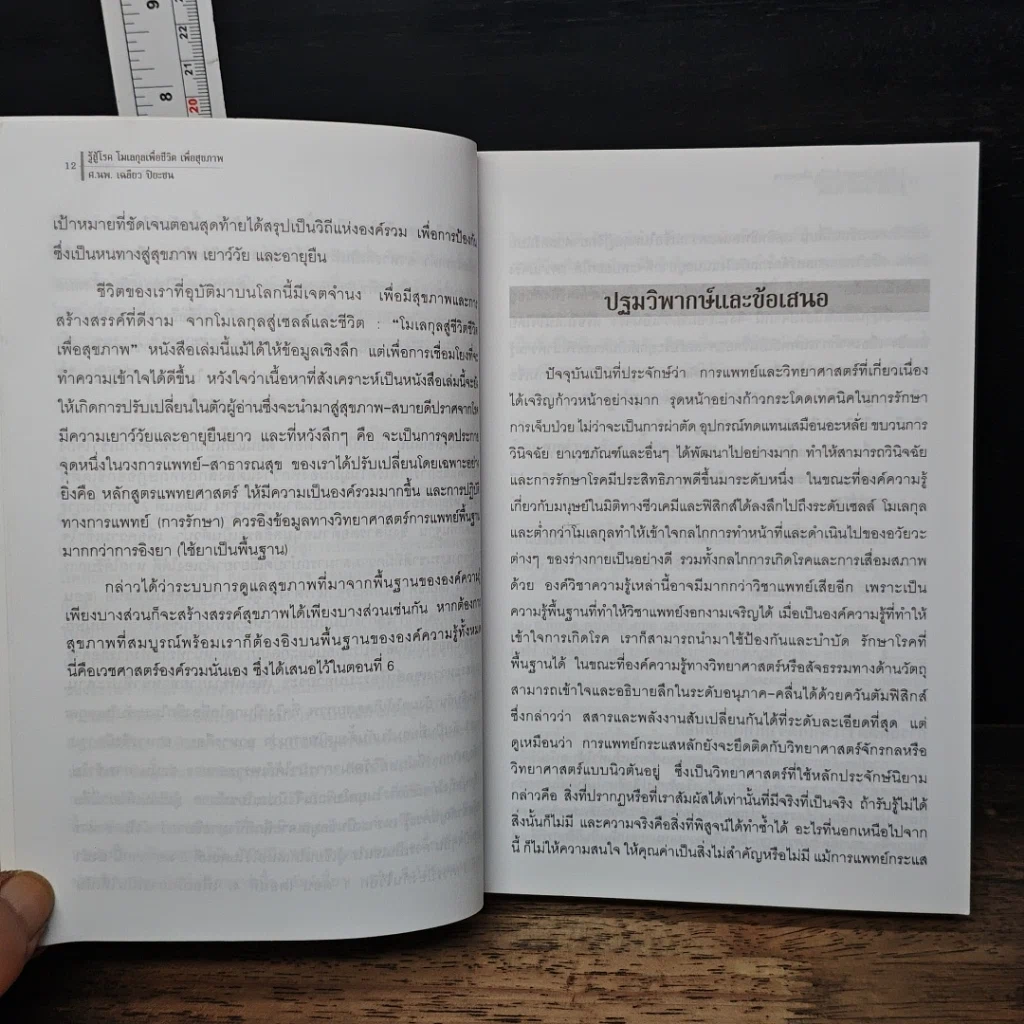 9
22
21
8
20
12
รู้สู้โรค โมเลกุลเพื่อชีวิต เพื่อสุขภาพ
ศ.นพ. เฉลียว ปิยะชน
เป้าหมายที่ชัดเจนตอนสุดท้ายได้สรุปเป็นวิถีแห่งองค์รวม เพื่อการป้องกัน
ซึ่งเป็นหนทางสู่สุขภาพ เยาว์วัย และอายุยืน
ชีวิตของเราที่อุบัติมาบนโลกนี้มีเจตจำนง เพื่อมีสุขภาพและการ
สร้างสรรค์ที่ดีงาม จากโมเลกุลสู่เซลล์และชีวิต : “โมเลกุลสู่ชีวิตชีวิต
เพื่อสุขภาพ” หนังสือเล่มนี้แม้ได้ให้ข้อมูลเชิงลึก แต่เพื่อการเชื่อมโยงที่จะ
ทำความเข้าใจได้ดีขึ้น หวังใจว่าเนื้อหาที่สังเคราะห์เป็นหนังสือเล่มนี้จะยัง
ให้เกิดการปรับเปลี่ยนในตัวผู้อ่านซึ่งจะนำมาสู่สุขภาพ-สบายดีปราศจากโรค
มีความเยาว์วัยและอายุยืนยาว และที่หวังลึกๆ คือ จะเป็นการจุดประกาย
จุดหนึ่งในวงการแพทย์-สาธารณสุข ของเราได้ปรับเปลี่ยนโดยเฉพาะอย่าง
ยิ่งคือ หลักสูตรแพทยศาสตร์ ให้มีความเป็นองค์รวมมากขึ้น และการปฏิบัติ
ทางการแพทย์ (การรักษา) ควรอิงข้อมูลทางวิทยาศาสตร์การแพทย์พื้นฐาน
มากกว่าการอิงยา (ใช้ยาเป็นพื้นฐาน)
กล่าวได้ว่าระบบการดูแลสุขภาพที่มาจากพื้นฐานขององค์ความรู้
เพียงบางส่วนก็จะสร้างสรรค์สุขภาพได้เพียงบางส่วนเช่นกัน หากต้องการ
สุขภาพที่สมบูรณ์พร้อมเราก็ต้องอิงบนพื้นฐานขององค์ความรู้ทั้งหมด
นี่คือเวชศาสตร์องค์รวมนั่นเอง ซึ่งได้เสนอไว้ในตอนที่ 6
ปฐมวิพากษ์และข้อเสนอ
ปัจจุบันเป็นที่ประจักษ์ว่า การแพทย์และวิทยาศาสตร์ที่เกี่ยวเนื่อง
ได้เจริญก้าวหน้าอย่างมาก รุดหน้าอย่างก้าวกระโดดเทคนิคในการรักษา
การเจ็บป่วย ไม่ว่าจะเป็นการผ่าตัด อุปกรณ์ทดแทนเสมือนอะหลั่ย ขบวนการ
วินิจฉัย ยาเวชภัณฑ์และอื่นๆ ได้พัฒนาไปอย่างมาก ทำให้สามารถวินิจฉัย
และการรักษาโรคมีประสิทธิภาพดีขึ้นมาระดับหนึ่ง ในขณะที่องค์ความรู้
เกี่ยวกับมนุษย์ในมิติทางชีวเคมีและฟิสิกส์ได้ลงลึกไปถึงระดับเซลล์ โมเลกุล
และต่ำกว่าโมเลกุลทำให้เข้าใจกลไกการทำหน้าที่และดำเนินไปของอวัยวะ
ต่างๆ ของร่างกายเป็นอย่างดี รวมทั้งกลไกการเกิดโรคและการเสื่อมสภาพ
ด้วย องค์วิชาความรู้เหล่านี้อาจมีมากกว่าวิชาแพทย์เสียอีก เพราะเป็น
ความรู้พื้นฐานที่ทำให้วิชาแพทย์งอกงามเจริญได้ เมื่อเป็นองค์ความรู้ที่ทำให้
เข้าใจการเกิดโรค เราก็สามารถนำมาใช้ป้องกันและบำบัด รักษาโรคที่
พื้นฐานได้ ในขณะที่องค์ความรู้ทางวิทยาศาสตร์หรือสัจธรรมทางด้านวัตถุ
สามารถเข้าใจและอธิบายลึกในระดับอนุภาค-คลื่นได้ด้วยควันตัมฟิสิกส์
ซึ่งกล่าวว่า สสารและพลังงานสับเปลี่ยนกันได้ที่ระดับละเอียดที่สุด แต่
ดูเหมือนว่า การแพทย์กระแสหลักยังจะยึดติดกับวิทยาศาสตร์จักรกลหรือ
วิทยาศาสตร์แบบนิวตันอยู่ ซึ่งเป็นวิทยาศาสตร์ที่ใช้หลักประจักษ์นิยาม
กล่าวคือ สิ่งที่ปรากฏหรือที่เราสัมผัสได้เท่านั้นที่มีจริงที่เป็นจริง ถ้ารับรู้ไม่ได้
สิ่งนั้นก็ไม่มี และความจริงคือสิ่งที่พิสูจน์ได้ทำซ้ำได้ อะไรที่นอกเหนือไปจาก
นี้ ก็ไม่ให้ความสนใจ ให้คุณค่าเป็นสิ่งไม่สำคัญหรือไม่มี แม้การแพทย์กระแส